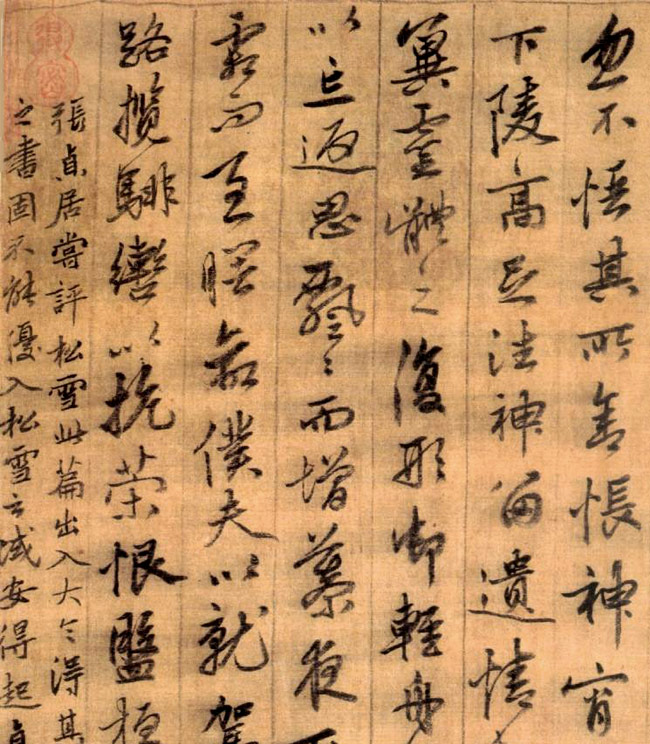 忽不悟其所舍悵神宵
下陵高足往神留遺情
冀靈體之復形御輕舟
以忘返思飄〻而增慕夜
霜而至曙命僕夫以就駕
路攬騑轡以抗策恨盤桓
張貞居嘗評松雪此篇出入大令得其
之書固不能優入松雪之域安得起貞